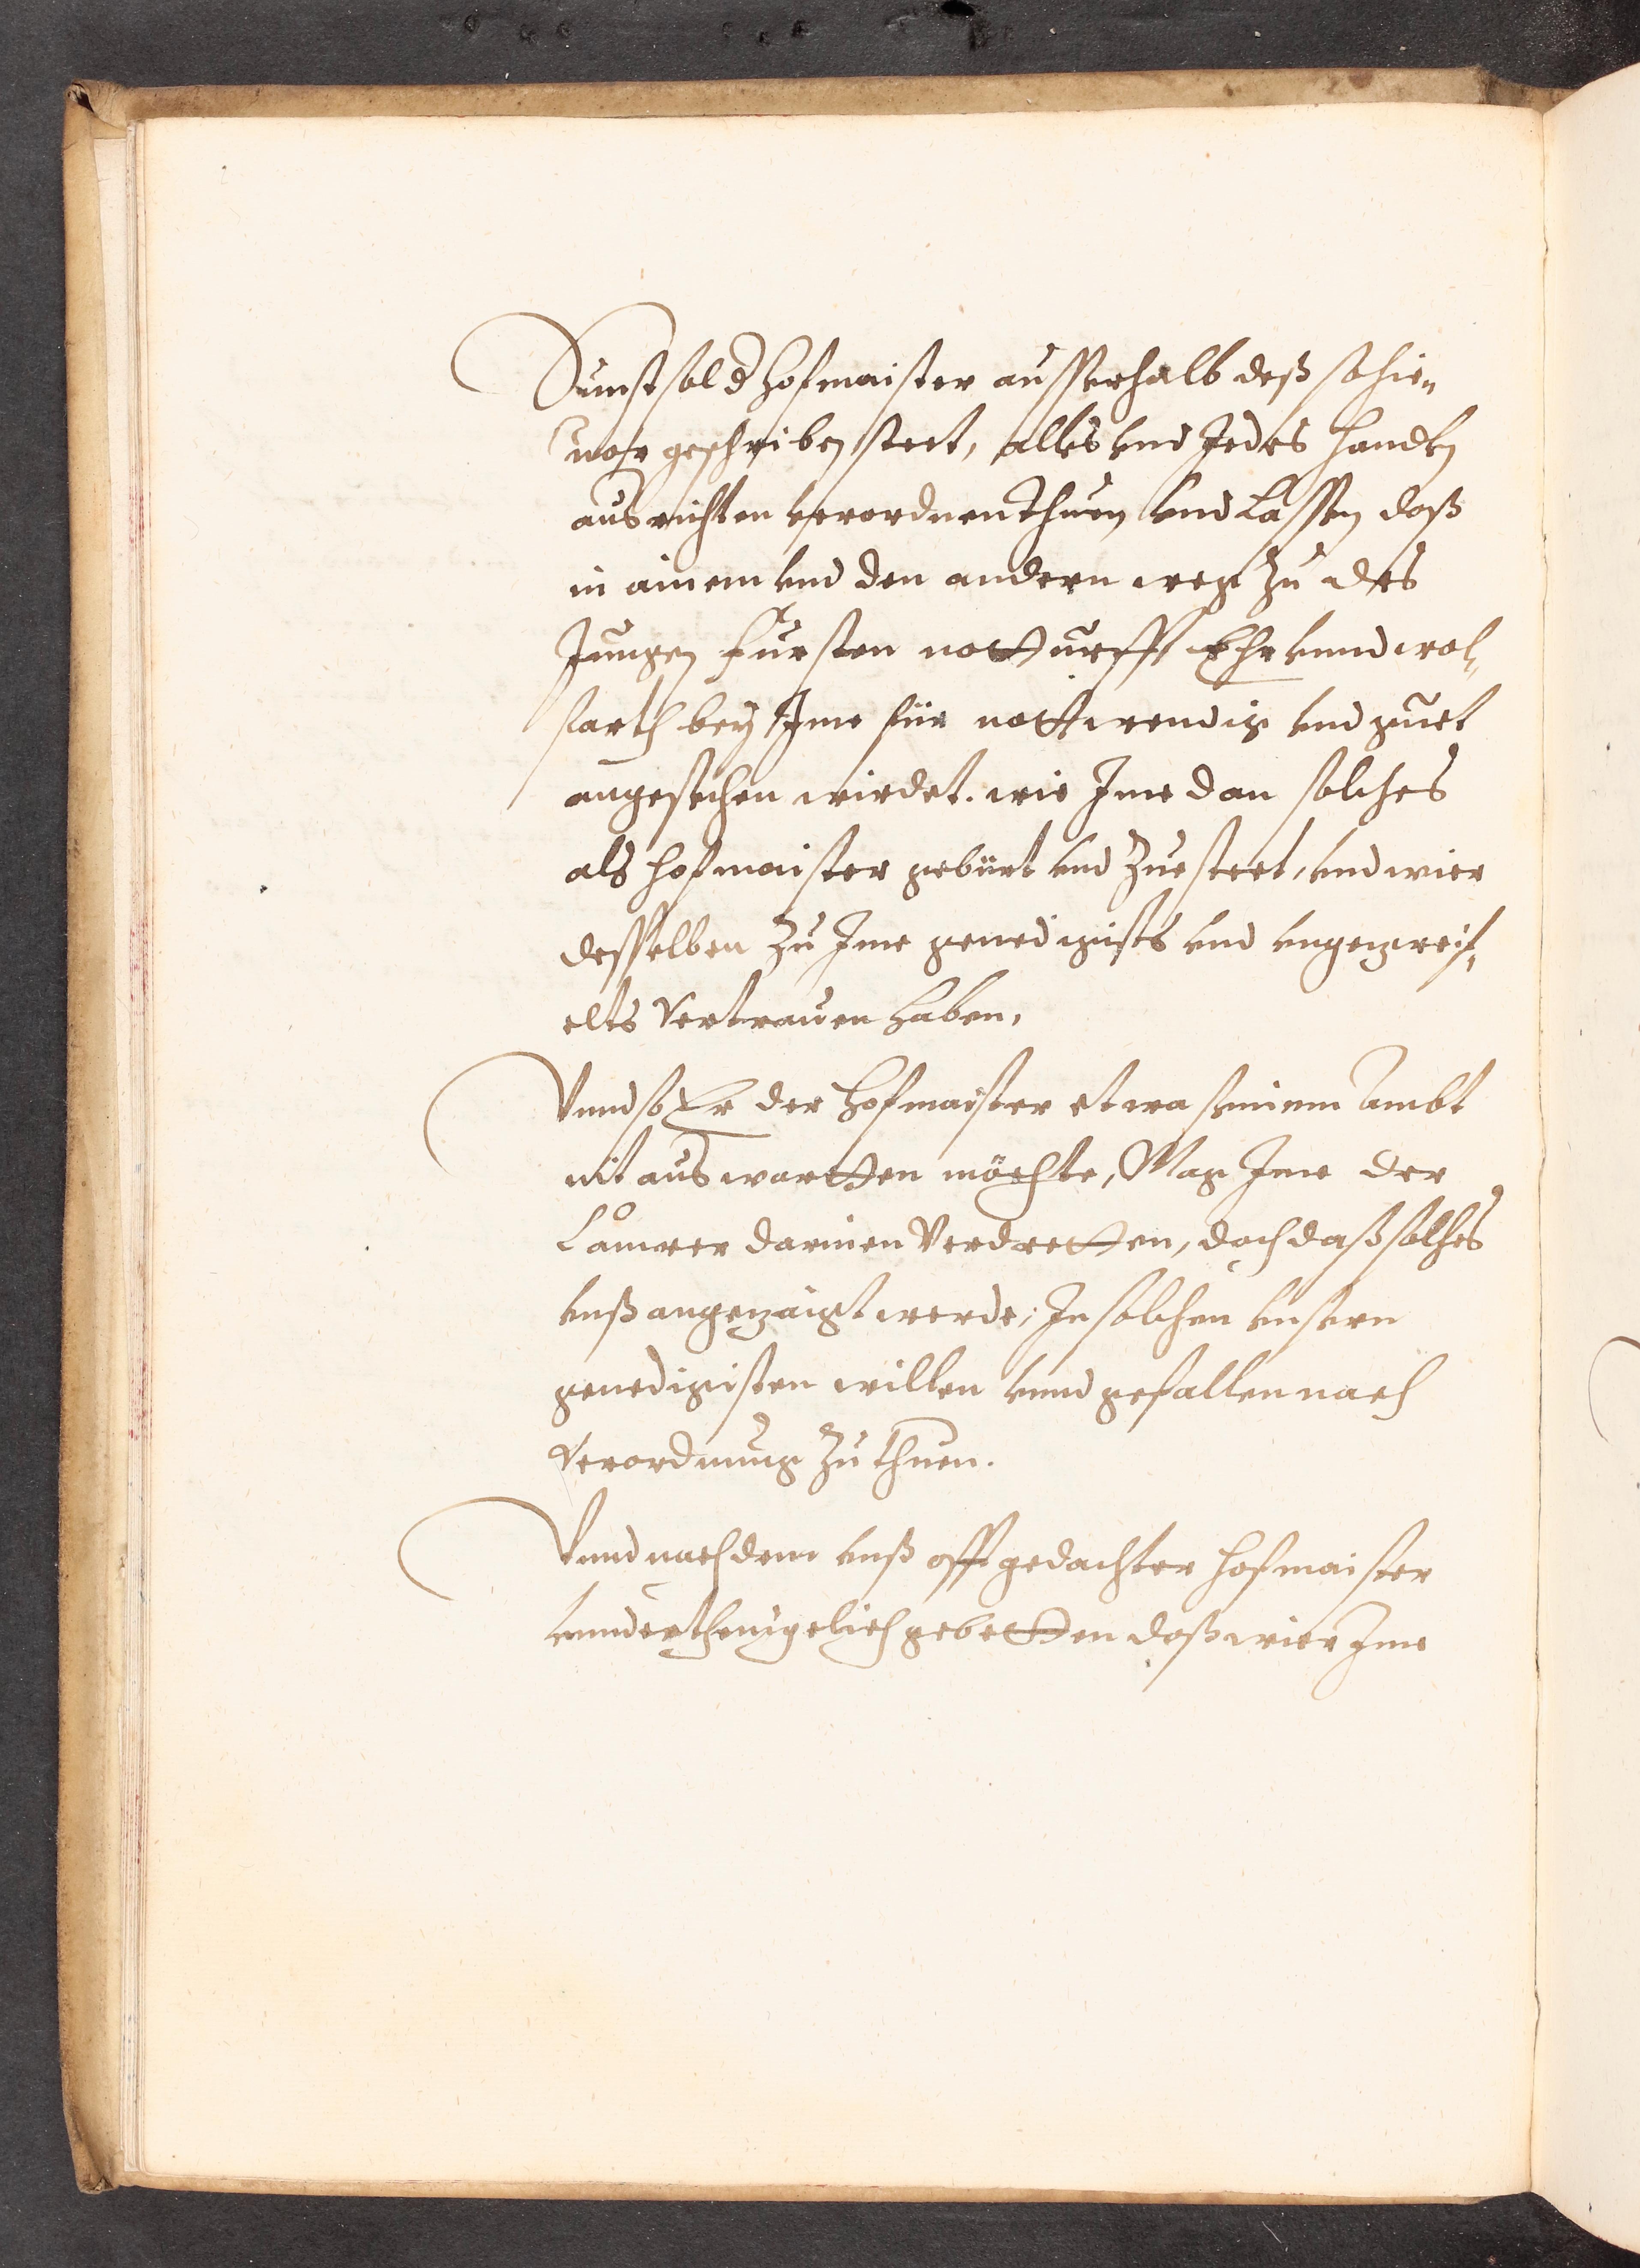 Sunst sol d Hofmaister ausserhalb deß so hie„
uor geschriben steet, alles vnd Jedes handlen
ausrichten verordnen Thuen vnd Lassen daß
in ainem vnd den andern weg zu des
Jungen Fürsten notturfft Ehr vnnd wol„
farth bey Jme für nottwendig vnd guet
angesechen wirdet. wie Jme dan solches
als Hofmaister gebürt vnd Zuesteet, vnd wier
desselben zu Jme genedigists vnd vngezweif„
elts Vertrauen haben,
Vnnd so Er der Hofmaister etwa seinem Ambt
nit auswartten möchte, Mag Jme der
Camrer darinen Verdretten, doch daß solches
vnß angezaigt werde, Jn solchem vnsern
genedigisten willen vnnd gefallen nach
Verordnung zu thuen.
Vnnd nachdem vnß offtgedachter Hofmaister
vnnderthenigelich gebetten daß wier Jme